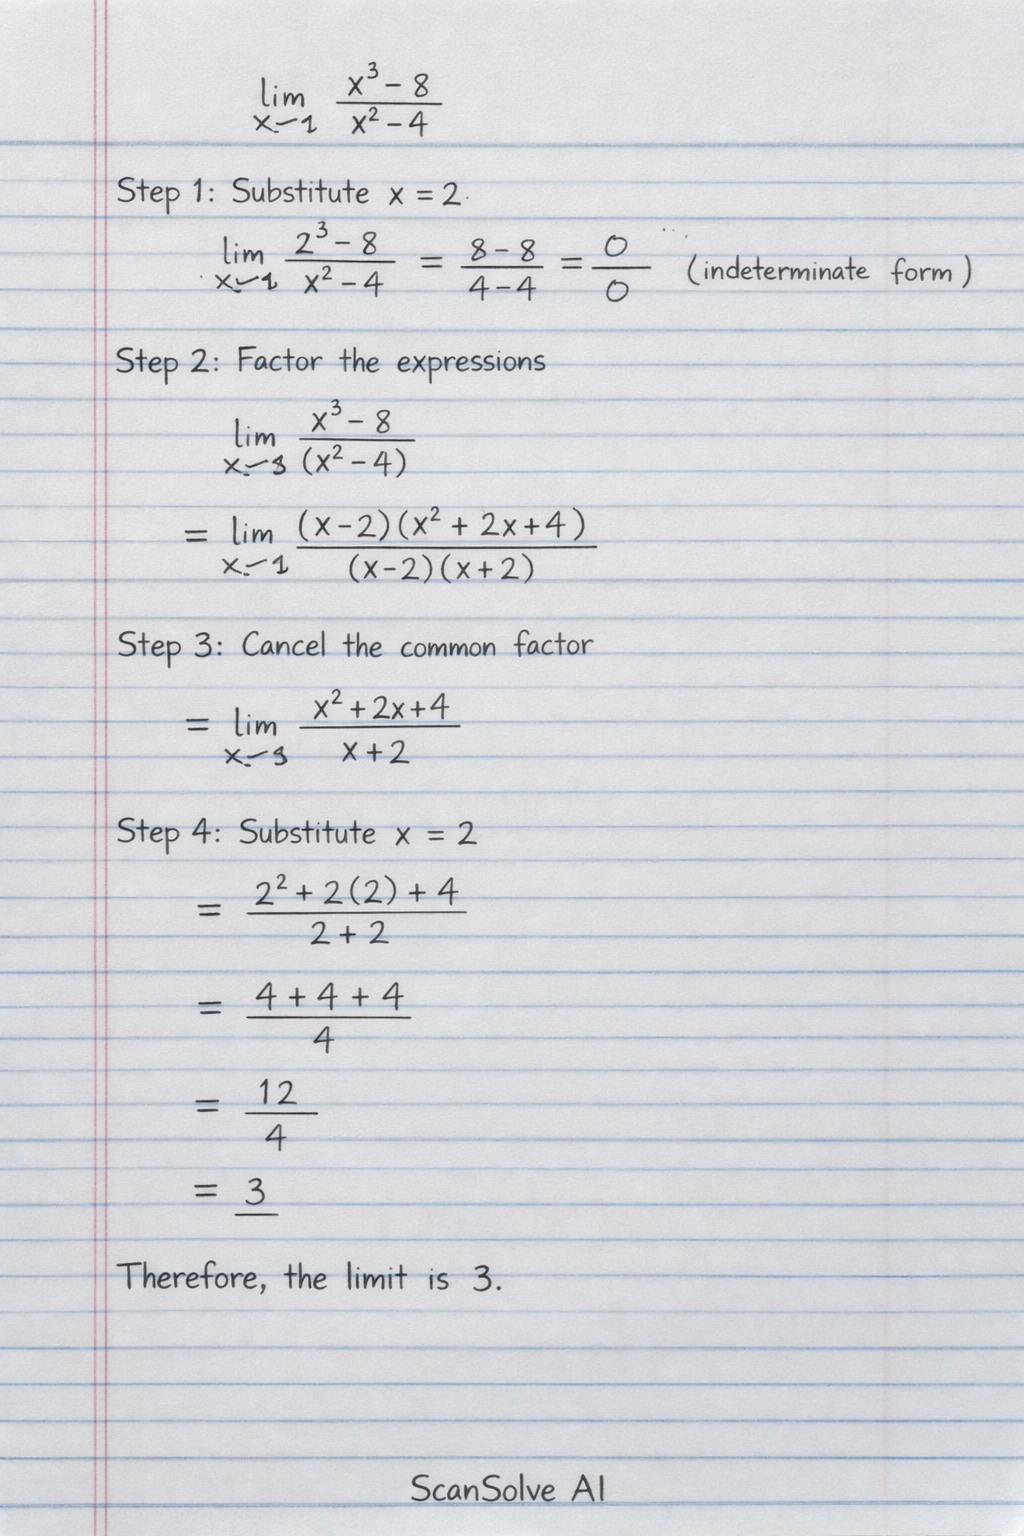 lim x→1 (x³ − 8)/(x² − 4)
Step 1: Substitute x = 2.
lim x→1 (2³ − 8)/(x² − 4) = (8 − 8)/(4 − 4) = 0/0 (indeterminate form)
Step 2: Factor the expressions
lim x→3 (x³ − 8)/((x² − 4))
= lim x→1 ((x−2)(x² + 2x+4))/((x−2)(x+2))
Step 3: Cancel the common factor
= lim x→3 (x²+2x+4)/(x+2)
Step 4: Substitute x = 2
= (2² + 2(2) + 4)/(2 + 2)
= (4 + 4 + 4)/4
= 12/4
= 3
Therefore, the limit is 3.
ScanSolve AI